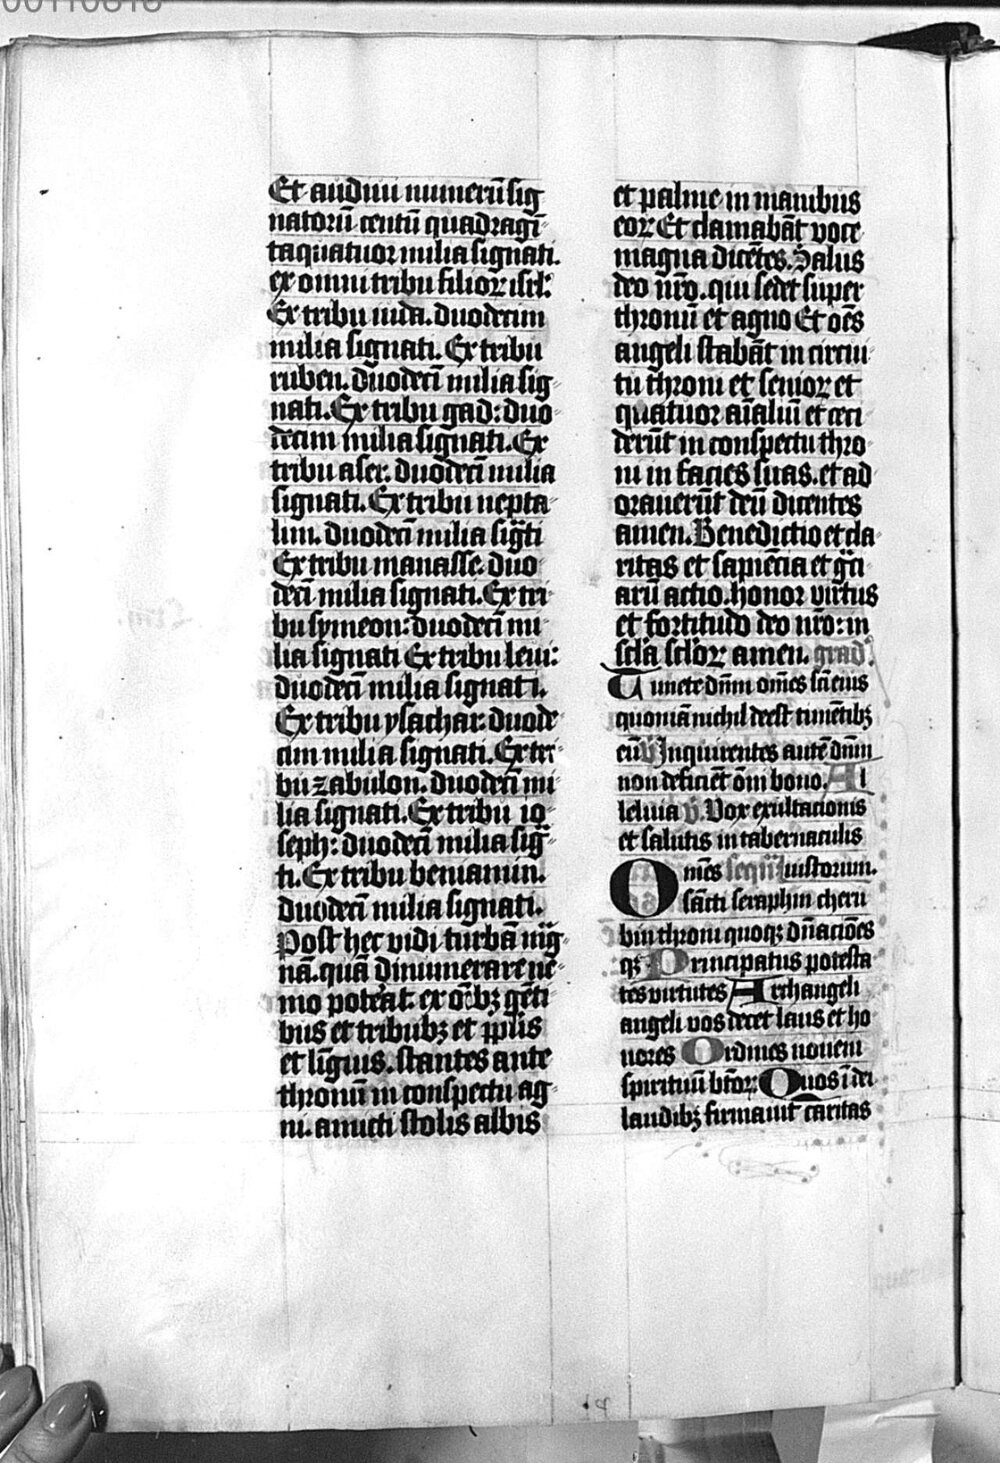 00110818
Et audiui numerū sig
natorū centū quadragī
taquatuor milia signati.
ex omni tribu filioꝝ isrl:
Ex tribu iuda. duodecim
milia signati. Ex tribu
ruben. duodecī milia sig
nati. Ex tribu gad: duo
decim milia signati. Ex
tribu aser. duodecī milia
signati. Ex tribu nepta
lim. duodecī milia sig̃ti
Ex tribu manasse. duo
decī milia signati. Ex tri
bu symeon: duodecī mi
lia signati Ex tribu leui:
duodecī milia signati.
Ex tribu ysachar: duode
cim milia signati. Ex tri
bu zabulon. duodecī mi
lia signati. Ex tribu io
seph: duodecī milia sig̃
ti. Ex tribu beniamin.
duodecī milia signati.
Post hec vidi turbā mag̃
nā. quā dinumerare ne
mo poterat. ex oībꝫ gēti
bus et tribubꝫ et ppl̄is
et līguis. stantes ante
thronū in conspectu ag
ni. amicti stolis albis
et palme in manibus
eoꝝ Et clamabāt voce
magna dicētes. Salus
deo nr̄o. qui sedet super
thronū et agno Et oēs
angeli stabāt in circui
tu throni et senioꝝ et
quatuor aīaliū et ceci
derūt in conspectu thro
ni in facies suas. et ad
orauerūt deū dicentes
amen. Benedictio et cla
ritas et sapiēcia et gr̄ci
arū actio. honor virtus
et fortitudo deo nr̄o: in
scl̄a scl̄oꝝ amen. grad᷒.
Timete dn̄m om̄es sc̄i eius
quoniā nichil deest timētibꝫ
eū V Inquirentes autē dn̄m
non deficiēt om̄i bono. Al
leluia V. Vox exultacionis
et salutis in tabernaculis
Om̄es sequī iustorum.
sācti seraphin cheru
bin throni quoqꝫ dn̄acōes
qꝫ Principatus potesta
tes virtutes Archangeli
angeli vos decet laus et ho
nores Ordines noueni
spirituū bt̄oꝝ: Quos ī dei
laudibꝫ firmauit caritas